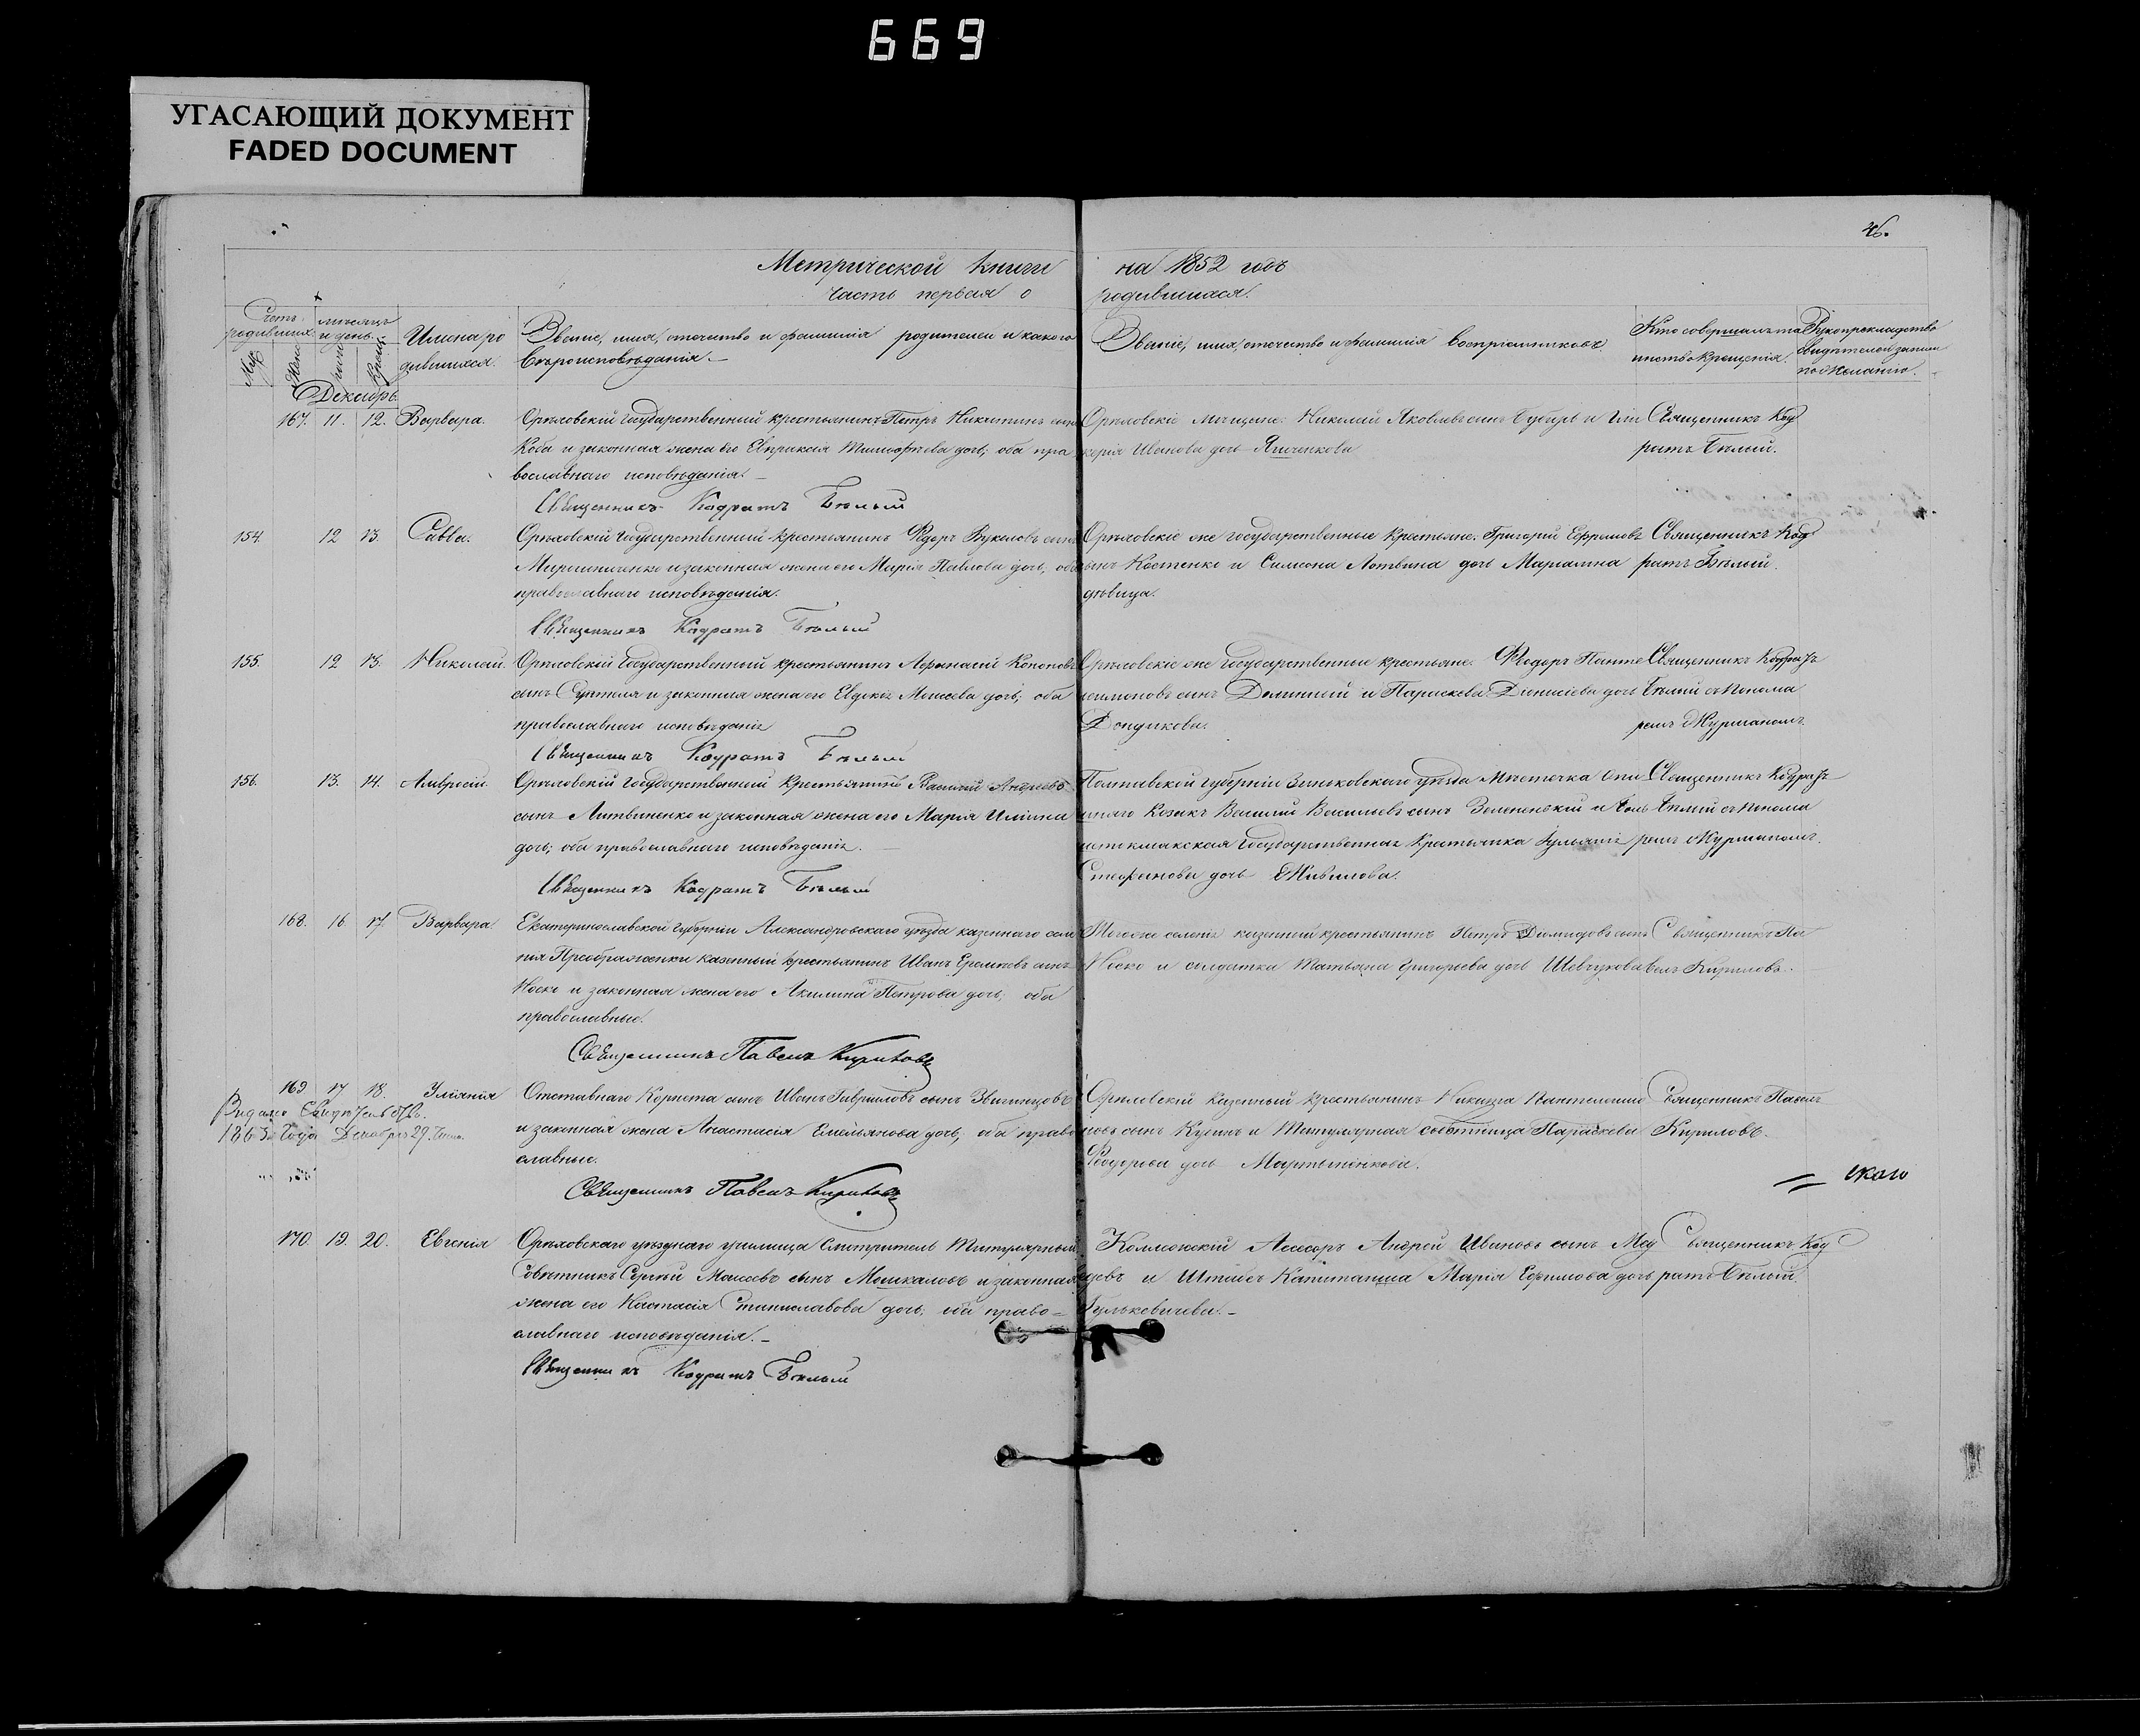 669
УГАСАЮЩИЙ ДОКУМЕНТ
FADED DOCUMENT
46.
Метрической книги на 1852 годъ
часть первая о родившихся.
Счетъ родившихся
Муж.
Жен.
мѣсяцъ и день.
рожд.
крещ.
Имена родившихся.
Званіе, имя, отечество и фамилія родителей и какого
вѣроисповѣданія.—
Званіе, имя, отечество и фамилія воспріемниковъ.
Кто совершалъ таинство крещенія.
Рукоприкладство свидѣтелей записи по желанію.
Декабрь
167. 11. 12. Варвара.
Орѣховскій государственный крестьянинъ Петръ Никитинъ сынъ
Коба и законная жена его Евпраксія Тимофѣева дочь; оба пра
вославнаго исповѣданія.—
Священникъ Кодратъ Бѣлый
Орѣховскіе мѣщане: Николай Яковлевъ сынъ и Гли
керія Иванова дочь
Священникъ Код
ратъ Бѣлый.
154. 12 13. Савва.
Орѣховскій государственный крестьянинъ Ѳедоръ Вуколовъ сынъ
Мирошниченко и законная жена его Марія Павлова дочь; оба
православнаго исповѣданія.
Священникъ Кодратъ Бѣлый
Орѣховскіе же государственные крестьяне: Григорій Ефремовъ
сынъ Костенко и Симеона Литвина дочь Маріамна
дѣвица.
Священникъ Код
ратъ Бѣлый.
155. 12 13. Николай.
Орѣховскій государственный крестьянинъ Афанасій Кононовъ
сынъ и законная жена его Евдокія Моисеева дочь; оба
православнаго исповѣданія
Священникъ Кодратъ Бѣлый
Орѣховскіе же государственные крестьяне: Ѳедоръ Панте
леимоновъ сынъ и Параскева Діонисіева дочь
Дондикова.
Священникъ Кодратъ
Бѣлый съ понома
ремъ Журманомъ.
156. 13. 14. Амвросій.
Орѣховскій государственный крестьянинъ Василій Андреевъ
сынъ Литвиненко и законная жена его Марія Ильина
дочь; оба православнаго исповѣданія.—
Священникъ Кодратъ Бѣлый
Полтавской губерніи Зиньковскаго уѣзда мѣстечка Опо
шнаго козакъ Василій Васильевъ сынъ Зелененскій и Боль
шетокмакская государственная крестьянка Іуліанія
Стефанова дочь
Священникъ Кодратъ
Бѣлый съ понома
ремъ Журманомъ.
168. 16 17. Варвара.
Екатеринославской губерніи Александровскаго уѣзда казеннаго селе
нія Преображенки казенный крестьянинъ Иванъ сынъ
Носко и законная жена его Акилина Петрова дочь; оба
православные.
Священникъ Павелъ Кириловъ
Тогоже селенія казенный крестьянинъ Петръ Діомидовъ сынъ
Носко и солдатка Татьяна Григорьева дочь Шевчукова
Священникъ Па
велъ Кириловъ.
169 17 18. Уліянія
1865 года Декабря 29.
Отставнаго Корнета сынъ Иванъ Гавриловъ сынъ
и законная жена Анастасія Емельянова дочь; оба право
славные.
Священникъ Павелъ Кириловъ
Орѣховскій казенный крестьянинъ Никита Пантелеимо
новъ сынъ и Титулярная совѣтница Параскева
Ѳеодорова дочь Мартыненкова.
Священникъ Павелъ
Кириловъ.
170. 19. 20. Евгенія
Орѣховскаго уѣзднаго училища Смотритель Титулярный
Совѣтникъ Сергѣй Моисеевъ сынъ Мошкаловъ и законная
жена его Настасія Станиславова дочь; оба право=
славнаго исповѣданія.—
Священникъ Кодратъ Бѣлый
Коллежскій Асессоръ Андрей Ивановъ сынъ
и Штабсъ Капитанша Марія Ефимова дочь
Гулькевичева.—
Священникъ Код
ратъ Бѣлый.